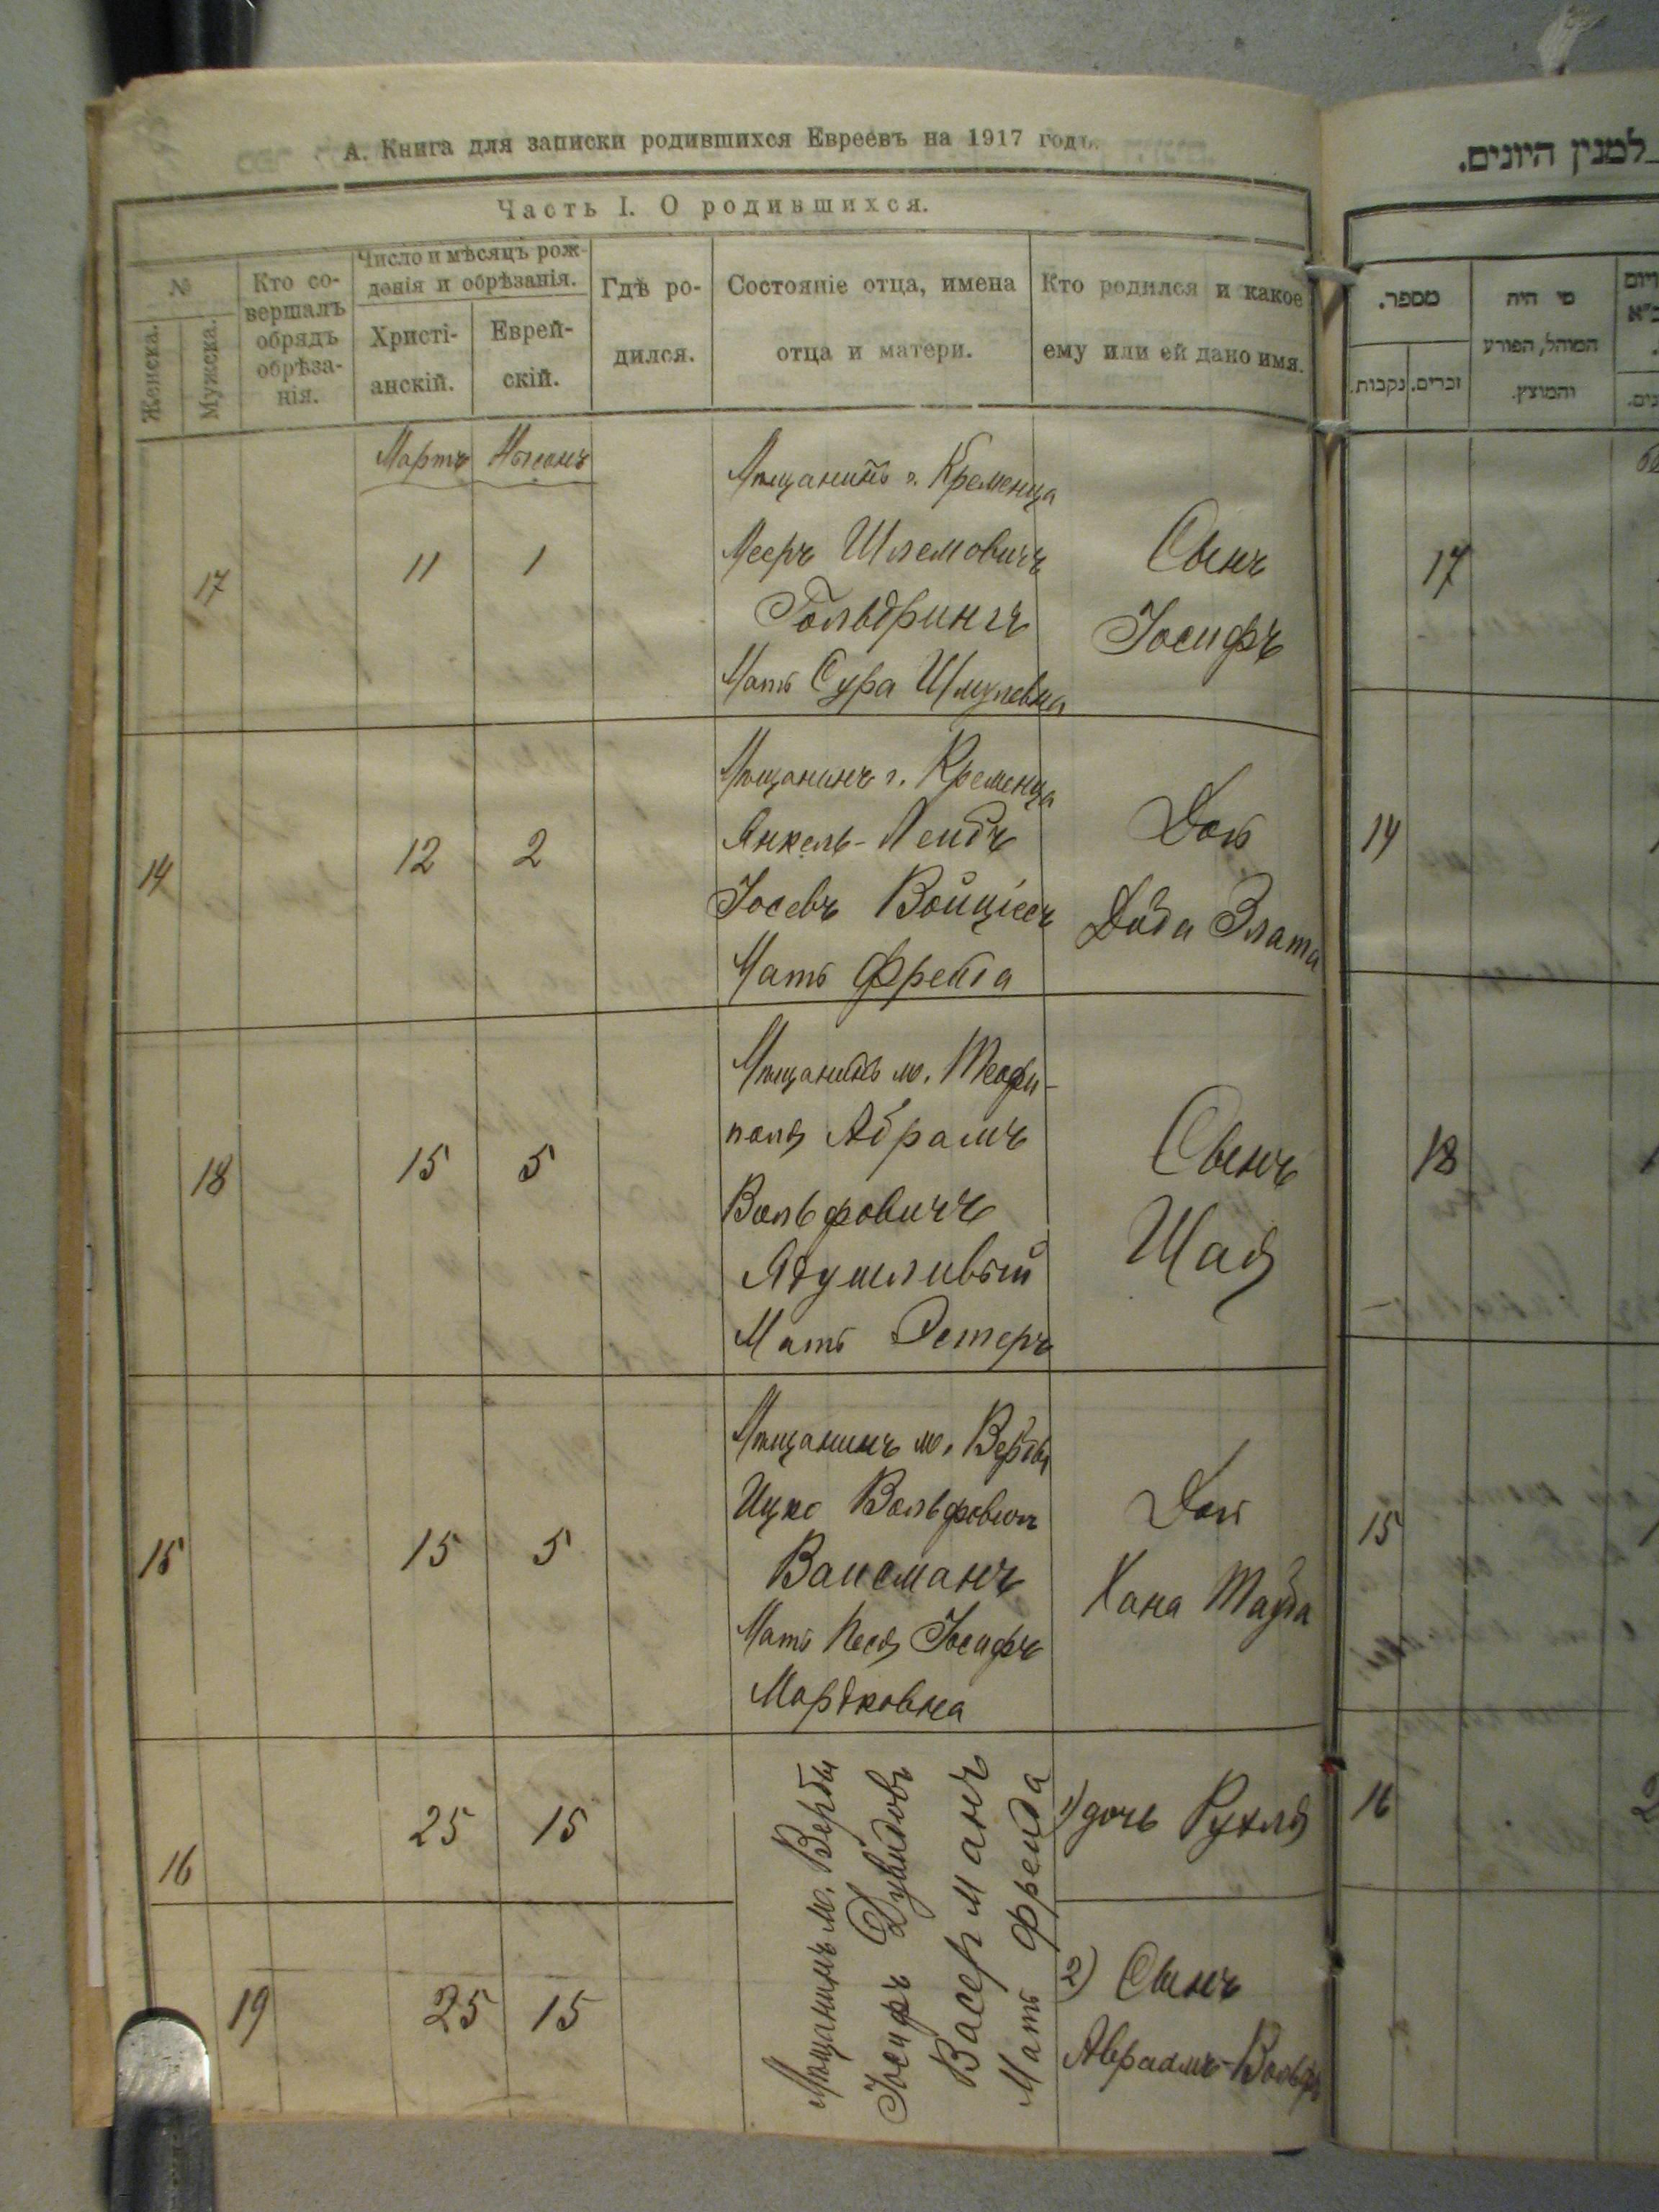 А. Книга для записки родившихся Евреевъ на 1917 годъ.
Часть I. О родившихся.
№
Женска.
Мужска.
Кто со-
вершалъ
обрядъ
обрѣза-
нія.
Число и мѣсяцъ рож-
денія и обрѣзанія.
Христі-
анскій.
Еврей-
скій.
Гдѣ ро-
дился.
Состояніе отца, имена
отца и матери.
Кто родился и какое
ему или ей дано имя.
Мартъ Нисонъ
17 11 1
Мѣщанинъ г. Кременца
Мееръ Шлемовичъ
Гольдрингъ
Мать Сура Шмулевна
Сынъ
Іосифъ
14 12 2
Мѣщанинъ г. Кременца
Янкель-Лейбъ
Іосевъ
Мать Фрейга
Дочь
Злата
18 15 5
Мѣщанинъ м. Теофи-
поля Абрамъ
Вольфовичъ
Мать Эстеръ
Сынъ
Шая
15 15 5
Мѣщанинъ м. Вербы
Ицко Вольфовичъ
Вайсманъ
Мать Песя Іосифъ
Мордковна
Дочь
Хана Тауба
16 25 15
19 25 15
Мѣщанинъ м. Вербы
Іосифъ Дувидовъ
Васерманъ
Мать Фрейда
1) дочь Рухля
2) Сынъ
Авраамъ-Вольфъ
למנין היונים.
מספר.
נקבות.
זכרים.
מי היה
המוהל, הפורע
והמוצץ.
17
14
18
15
16